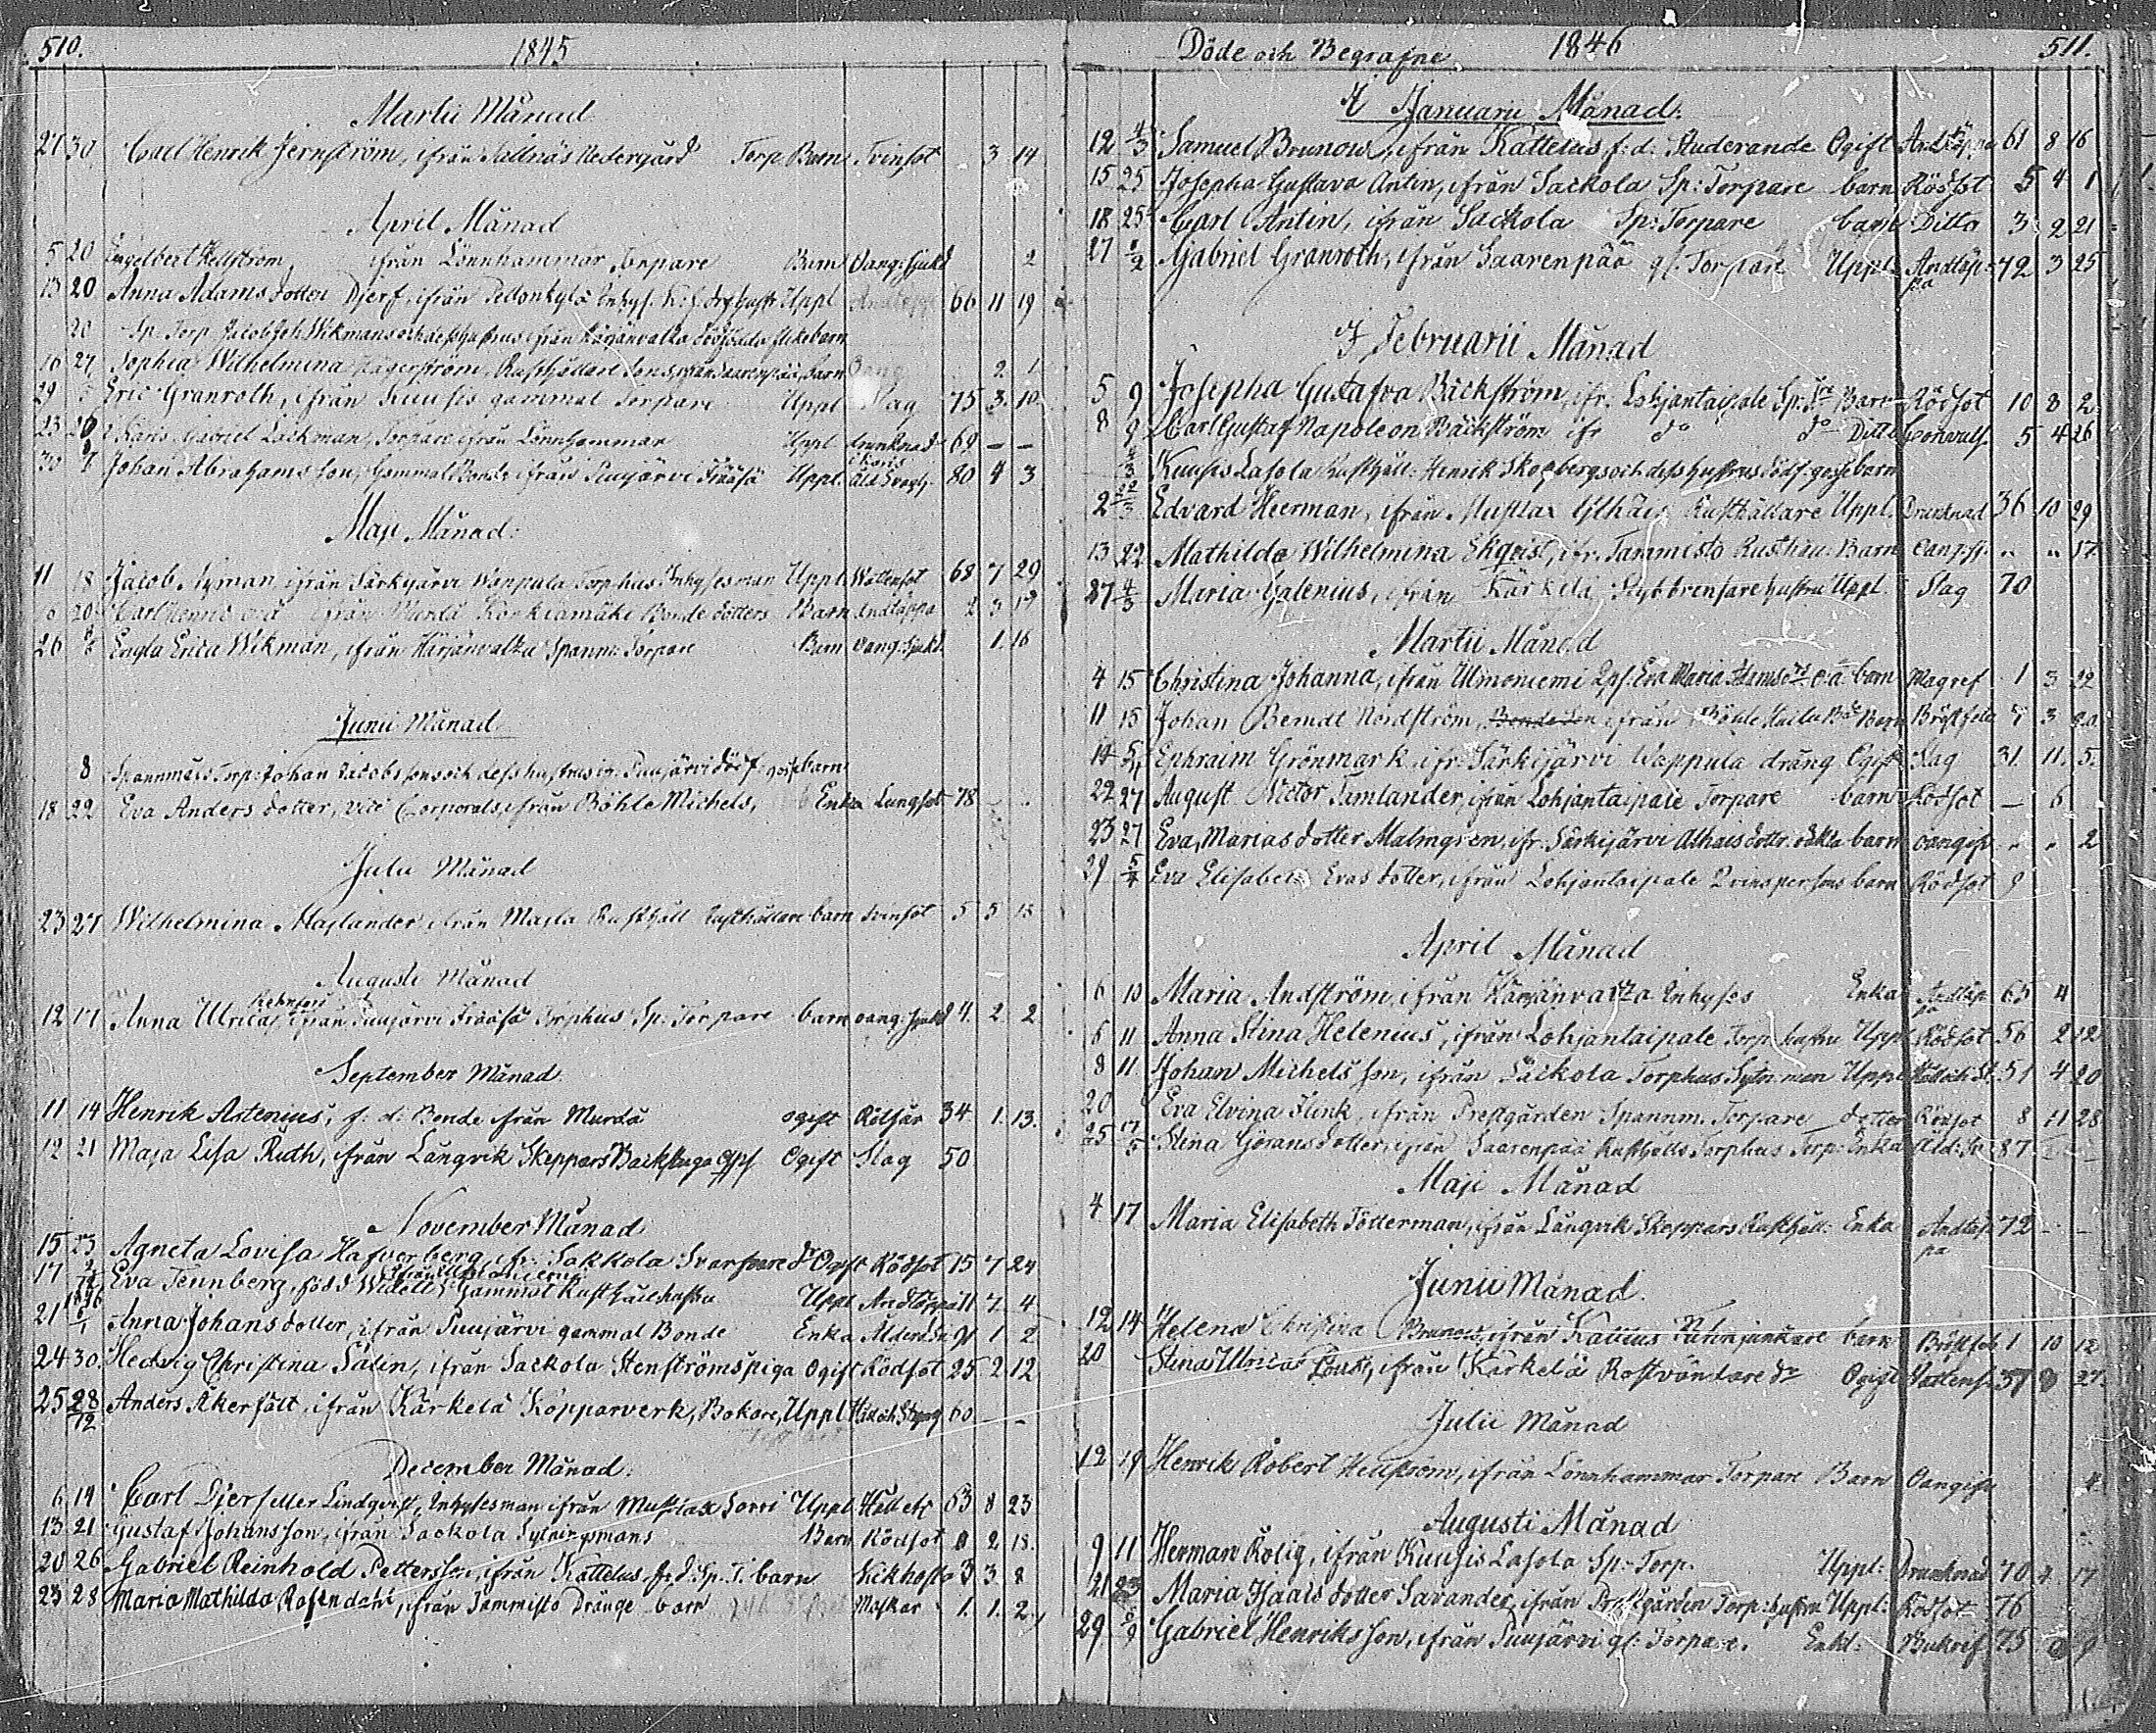 510. 1845
Martii Månad
27 30 Carl Henrik Jernström, ifrån Sallnäs Nedergård Torp. Barn Tvinsot 3 14
April Månad
5 20 Engelbert Hellström ifrån Lönnhammar Torpare Barn Oang. Sjukd 2
13 20 Anna Adams dotter Djerf, ifrån Uppl 66 11 19
20 Sp. Torp. Jacob Joh. Wikmans och dess hustrus ifrån Härjänvatsa flickebarn
16 27 Sophia Wilhelmina Hägerström, Rusthållare Barn 2 1
29 Eric Granroth, ifrån Kuusis gammal Torpare Uppl Slag 75 3 10
23 26 Karis Gabriel Lackman, Torpare ifrån Lönnhammar Uppl Drunknad i Karis 69 – –
30 Johan Abrahams son, Gammal Bonde ifrån Suujärvi Frääsä Uppl. 80 4 3
Maji Månad:
11 18 Jacob Nyman, ifrån Särkijärvi Wappula Torphus Inhysesman Uppl. Wattensot 68 7 29
20 Carl ifrån Murdå Bonde dotters Barn Andtäppa 2 3 19
26 Engla Erica Wikman, ifrån Härjänvatsa Spanm. Torpare Barn oang. Sjukd. 1. 16
Junii Månad
8 Spannmåls Torp: Johan Jacobssons och dess hustrus ifr. Suujärvi dödf. gossebarn
18 22 Eva Anders dotter, vice Corporals, ifrån Böhle Michels, Enka Lungsot 78
Julii Månad
23 27 Wilhelmina Maslander, ifrån Maila Rusthåll Rusthållare barn tvinsot 5 5 13
Augusti Månad
12 17 Anna Ulrica, ifrån Suujärvi Frääsä Torphus Sp. Torpare barn oang. Sjukd 4. 2. 2
September Månad.
11 14 Henrik Artenius, f. d. Bonde ifrån Murdå ogift Rötsår 34. 1. 13.
12 21 Maja Lisa Ruth, ifrån Långvik Skeppars Backstuga Ogift Slag 50
November Månad
15 23 Agneta Lovisa Hafverberg, ifr. Sakkola Svarfvare dr Ogift Rödsot 15 7 24
17 Eva Tennberg, född Widell, Gammal Rusth: hustru Uppl Andtäppa 11 7 4
21 Anna Johans dotter, ifrån Suujärvi gammal Bonde Enka Alderd. 1 2
24 30. Hedvig Christina Salin, ifrån Sackola Stenströms piga Ogift Rödsot 25 2 12
25 28/12 Anders Åkerfält, ifrån Kärkelä Kopparverk, Bokare, Uppl. Håll och Styng 60 – –
December Månad.
6 14 Carl Djerf eller Lindqvist, Inhysesman ifrån Mustlax Sorri Uppl 63 8 23
13 21 Gustaf Johansson, ifrån Sackola Sytningsmans Barn Rödsot 2 18.
20 26 Gabriel Reinhold Pettersson, ifrån Kattelus f. d. Sp. T. barn Kikhosta 3 3 8
23 28 Maria Mathilda Rosendahl, ifrån Tammisto Drängs barn Maskar 1. 1. 2
Döde och Begrafne 1846 511.
I Januarii Månad:
12 4/3 Samuel Brunow, ifrån Kattelus f: d: Studerande Ogift Andtäppa 61 8 16
15 25 Josepha Gustava Antin, ifrån Sackola Sp: Torpare barn Rödsot 5 4 1
18 25 Carl Antin, ifrån Sackola Sp: Torpare barn Ditto 3 2 21
27 1/2 Gabriel Granroth, ifrån Saarenpää gl. Torpare Uppl. Andtäppa 72 3 25
I Februarii Månad
5 9 Josepha Gustafva Bäckström, ifr. Lohjantaipale Sp. Barn Rödsot 10 8 2
8 9 Carl Gustaf Napoleon Bäckström ifr do do Ditto Convuls. 5 4 26
4/3 Kuusis Lasola Rusthåll: Henrik Skogbergs och dess hustrus dödf: gossebarn
2 22/3 Edvard Heerman, ifrån Mustlax Ythäis Rusthållare Uppl. Drunknad 36 10 29
13 22 Mathilda Wilhelmina Ekqvist, ifr. Tammisto Rusthåll: Barn Oang. sj. " " 17
27 4/3 Maria Galenius, ifrån Kärkelä hustru Uppl. Slag 70
Martii Månad
4 15 Christina Johanna, ifrån Ulmoniemi Qps. Eva Maria oä barn Magref 1 3 22
11 15 Johan Berndt Nordström, Bonde Son ifrån Böhle Barn Bröstfeber 7 3 20.
14 5/4 Ephraim Grönmark, ifr: Särkijärvi Wappula dräng Ogift Slag 31. 11. 5.
22 27 August Victor Tamlander, ifrån Lohjantaipale Torpare barn Rödsot – 6
23 27 Eva Marias dotter Malmgren, ifr. Särkijärvi Alhais dottr. oäkta barn oangifv. " " 2
29 5/4 Eva Elisabeth Evas dotter, ifrån Lohjantaipale Qvinspersons barn Rödsot 9
April Månad
6 10 Maria Andström, ifrån Härjänvatsa Inhyses Enka Andtäppa 65 4
6 11 Anna Stina Helenius, ifrån Lohjantaipale Torp. hustru Uppl Rödsot 56 2 12
8 11 Johan Michels son, ifrån Säckola Torphus Sytn. man Uppl Håll och St. 51 4 20
20 Eva Elvina Flink, ifrån Prestgården Spannm. Torpare dotter Rödsot 8 11 28
25 17/5 Stina Görans dotter, ifrån Saarenpää Rusthålls Torphus Torp: Enka 87
Maji Månad
4 17 Maria Elisabeth Tötterman, ifrån Långvik Skeppars Rusthåll: Enka Andtäppa 72 – –
Junii Månad.
12 14 Helena Christina Brunow, ifrån Kattlus barn Bröstfeb. 1 10 12
20 Stina Ulrica ifrån Kärkelä Rostvändare dr Ogift 37 27.
Julii Månad
12 19 Henrik Robert Hellström, ifrån Lönnhammar Torpare Barn Oangifv 4
Augusti Månad
9 11 Herman Rolig, ifrån Kuusis Lasola Sp: Torp. Uppl: Drunknad 70 4 17
21 23 Maria Isaacs dotter Savander, ifrån Prestgården Torp: hustru Uppl: Rödsot 76
29 6/9 Gabriel Henriks son, ifrån Suujärvi gl: Torpare. Enkl: Bukref 75 9